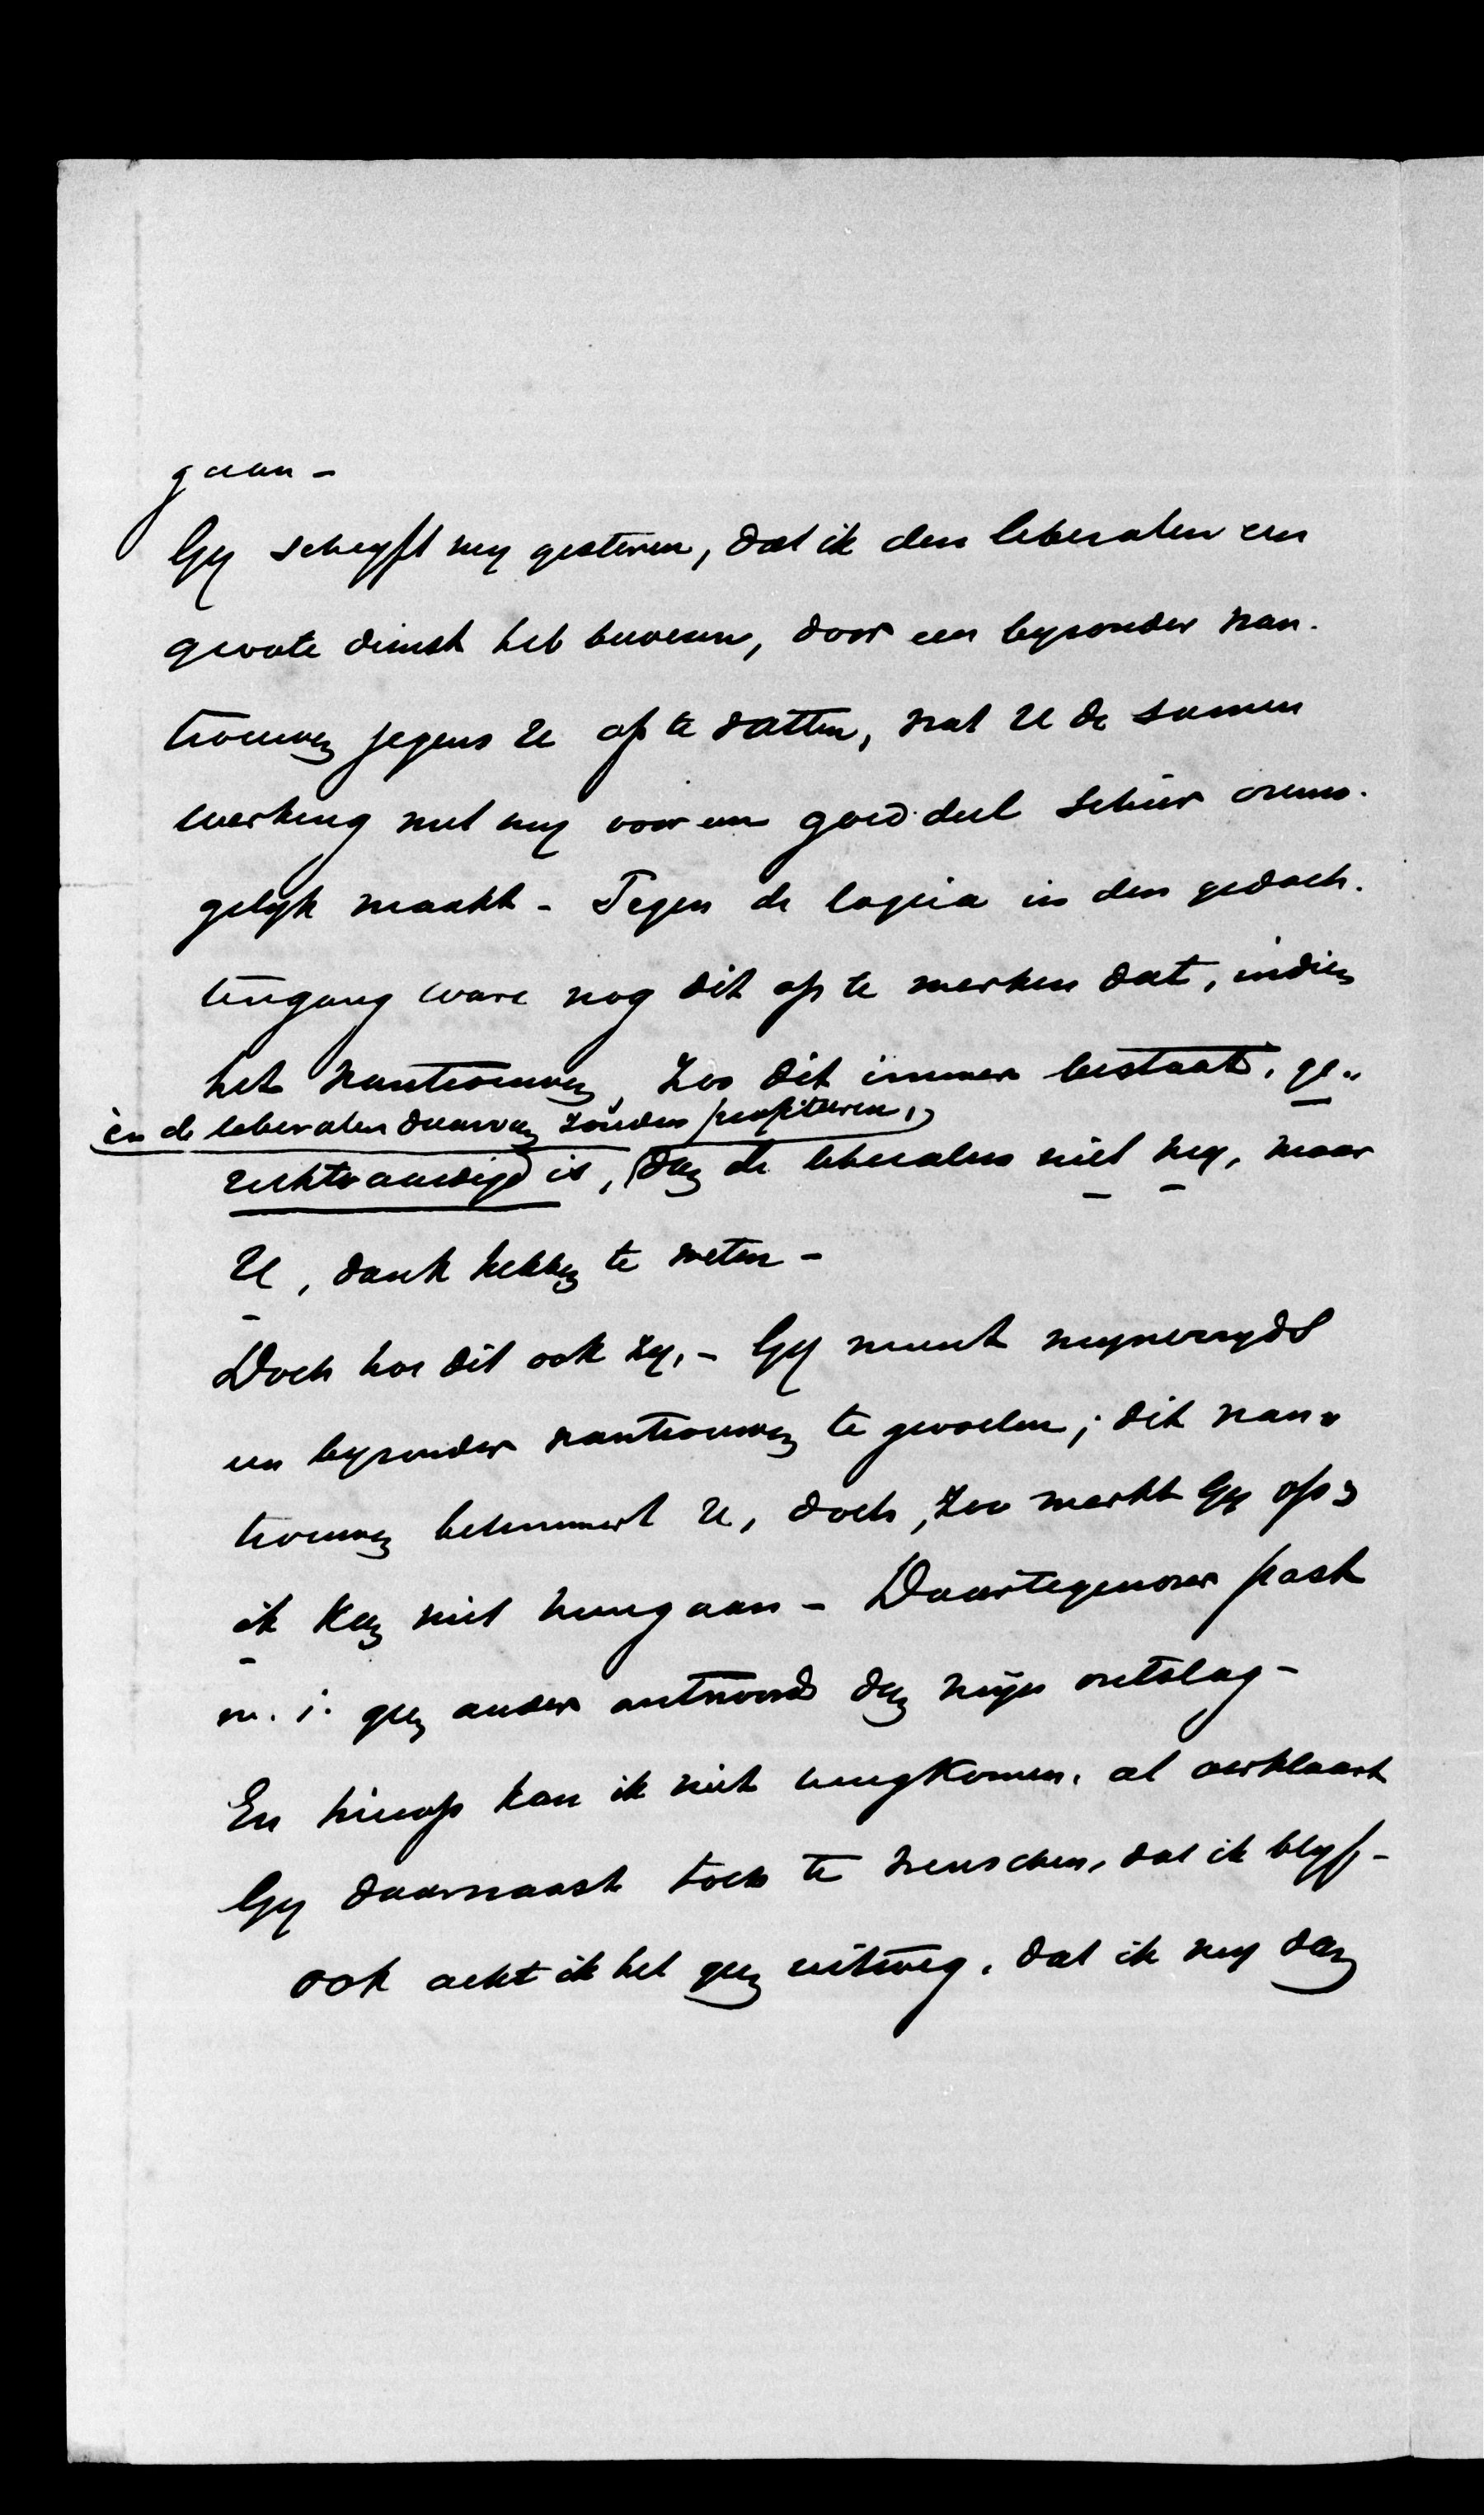 gaan -
Gij schrijft mij gisteren, dat ik den liberalen een
groote dienst heb bewezen, door een bijzonder wan-
trouwen jegens U op te vatten, wat U de samen
werking met mij voor een goed deel schier onmo-
gelijk maakt - Tegen de logica in den gedach-
tengang ware nog dit op te merken dat, indien
het wantrouwen, zoo dit immer bestaat, ge-
èn de liberalen daarvan zouden profiteeren,
rechtvaardigd is, dan de liberalen niet mij, maar
U, dank hebben te weten -
Doch hoe dit ook zij, - Gij meent mijnerzijds
een bijzonder wantrouwen te gevoelen; dit wan-
trouwen belemmert U, doch, zoo merkt Gij op,
ik kan niet heengaan - Daartegenover past
m. i. geen ander antwoord dan mijn ontslag -
En hierop kan ik niet terugkomen, al verklaart
Gij daarnaast toch te wenschen, dat ik blijf -
ook acht ik het geen uitweg, dat ik mij dan